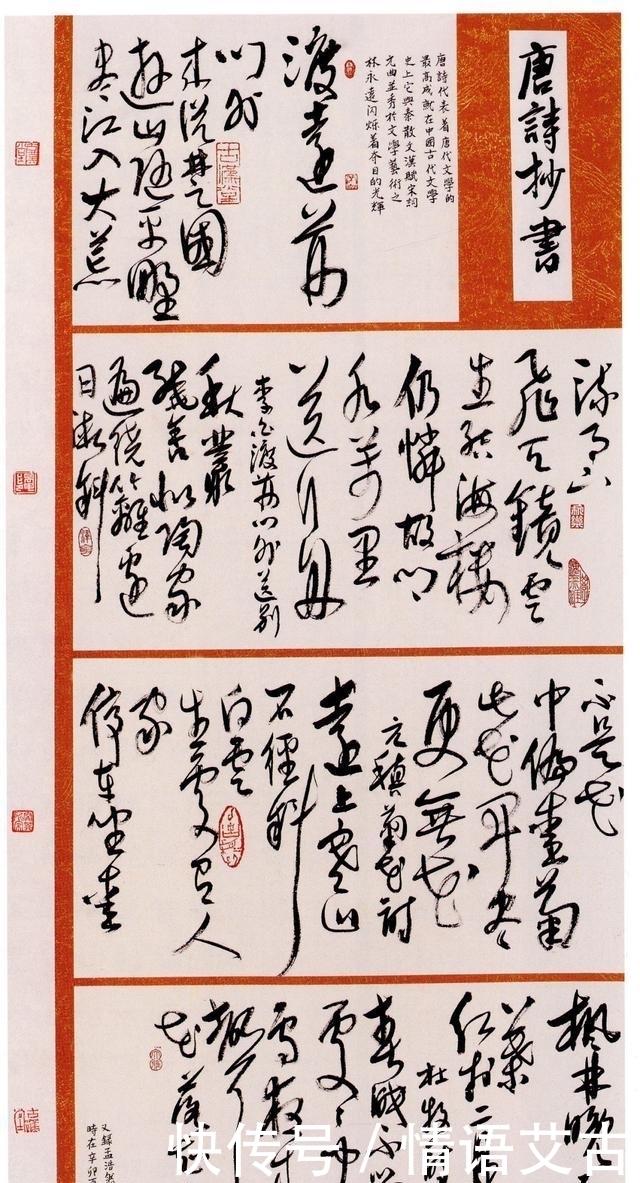 唐詩抄書
唐詩代表着唐代文學的
最高成就在中國古代文學
史上它與秦散文漢賦宋詞
元曲並秀於文學藝術之
林永遠闪爍着夺目的光輝
渡遠荊
门外
来從楚國
遊山随平野
尽江入大荒
流月下
飛天鏡雲
生结海樓
仍憐故乡
水万里
送行舟
李白渡荆门外送别
秋叢
绕舍似陶家
遍绕篱邊
日渐斜
不是花
中偏爱菊
此花开尽
更無花
元稹菊花詩
遠上寒山
石徑斜
白雲
生處有人
家
停车坐爱
枫林晚
葉
红於二
杜牧
春眠不
處處
花落
又録孟浩然
時在辛卯
快传号 / 情语艾古